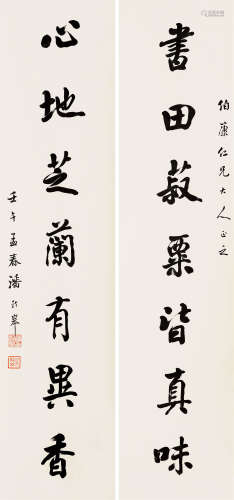 書田菽粟皆真味
伯薰仁兄大人正之
心地芝蘭有異香
壬午孟春潘齡皋